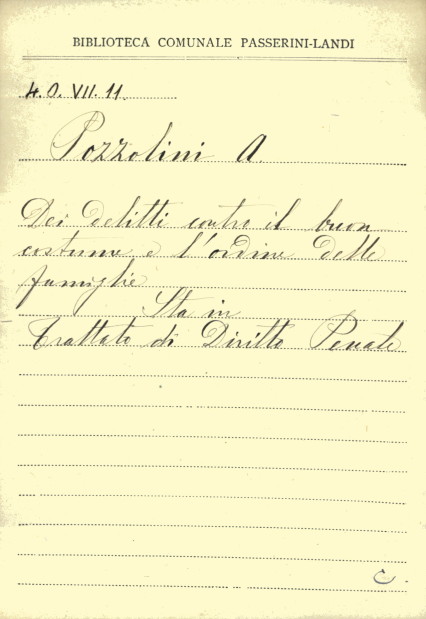 BIBLIOTECA COMUNALE PASSERINI-LANDI
4.O. VII. 11.
Pozzolini A.
Dei delitti contro il buon
costume e l'ordine delle
famiglie
Sta in
Trattato di Diritto Penale
C.